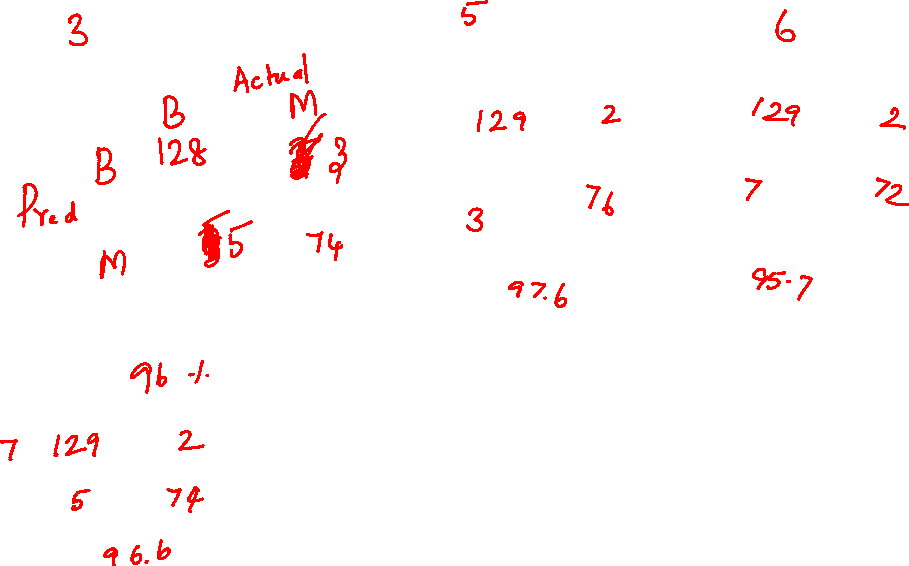 3
Actual
B M
B 128 3
Pred
5 74
M
96 %
5
129 2
3 76
97.6
6
129 2
7 72
95.7
7 129 2
5 74
96.6